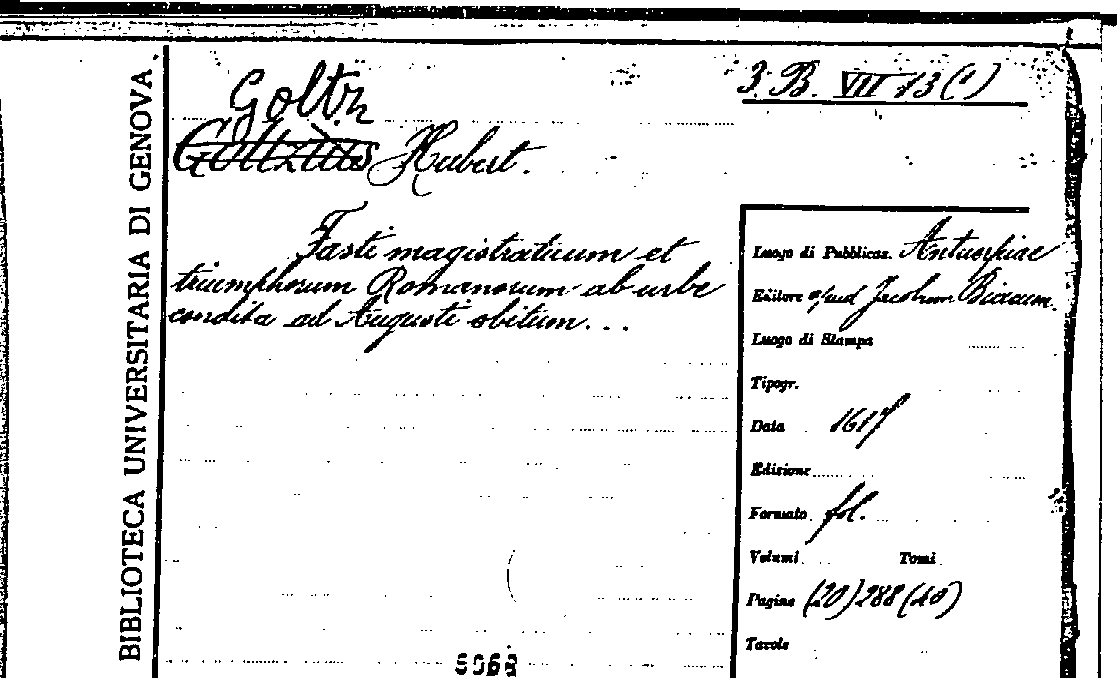 BIBLIOTECA UNIVERSITARIA DI GENOVA
3. B. VII 13 (1)
Goltz
Goltzius Hubert.
Fasti magistratuum et
triumphorum Romanorum ab urbe
condita ad Augusti obitum...
Luogo di Pubblicaz. Antuerpiae
Editore apud Jacobum Biaeum.
Luogo di Stampa
Tipogr.
Data 1617
Edizione
Formato fol.
Volumi Tomi
Pagine (20) 288 (40)
Tavole